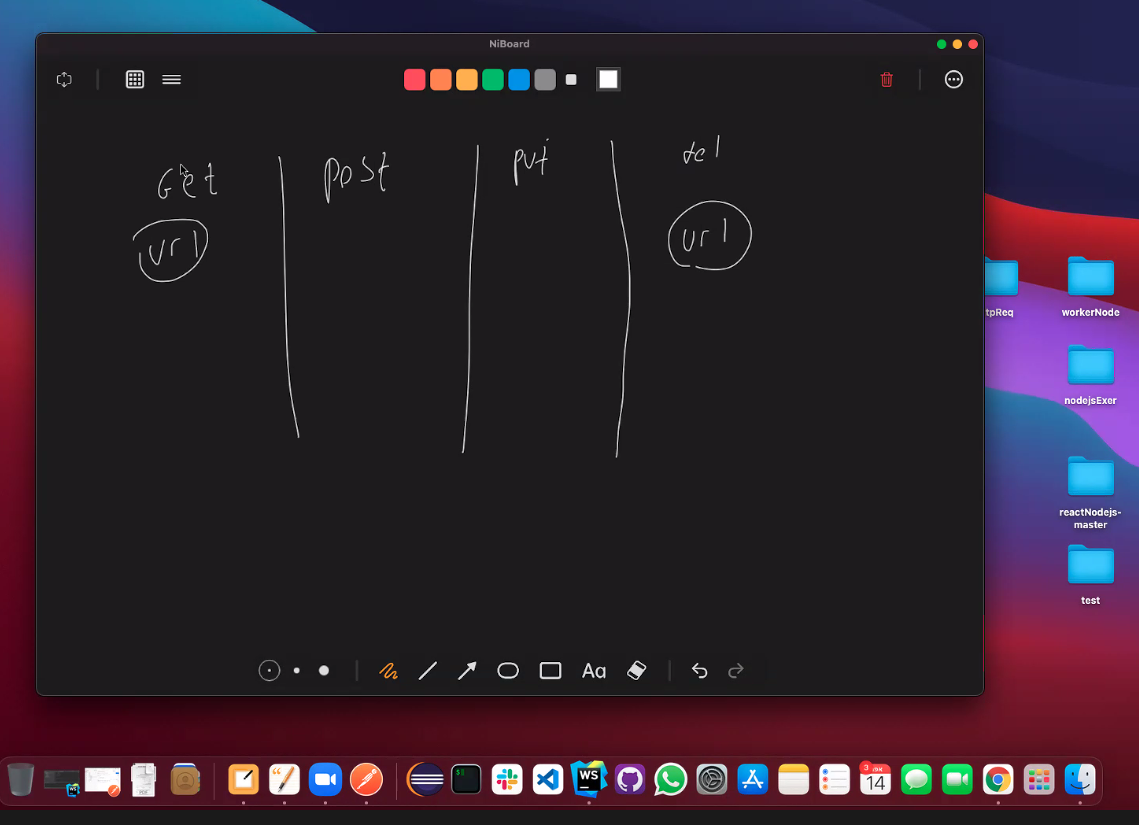 NiBoard
Get post put del
url url
tpReq workerNode
nodejsExer
reactNodejs-
master
test
Aa
WS
14